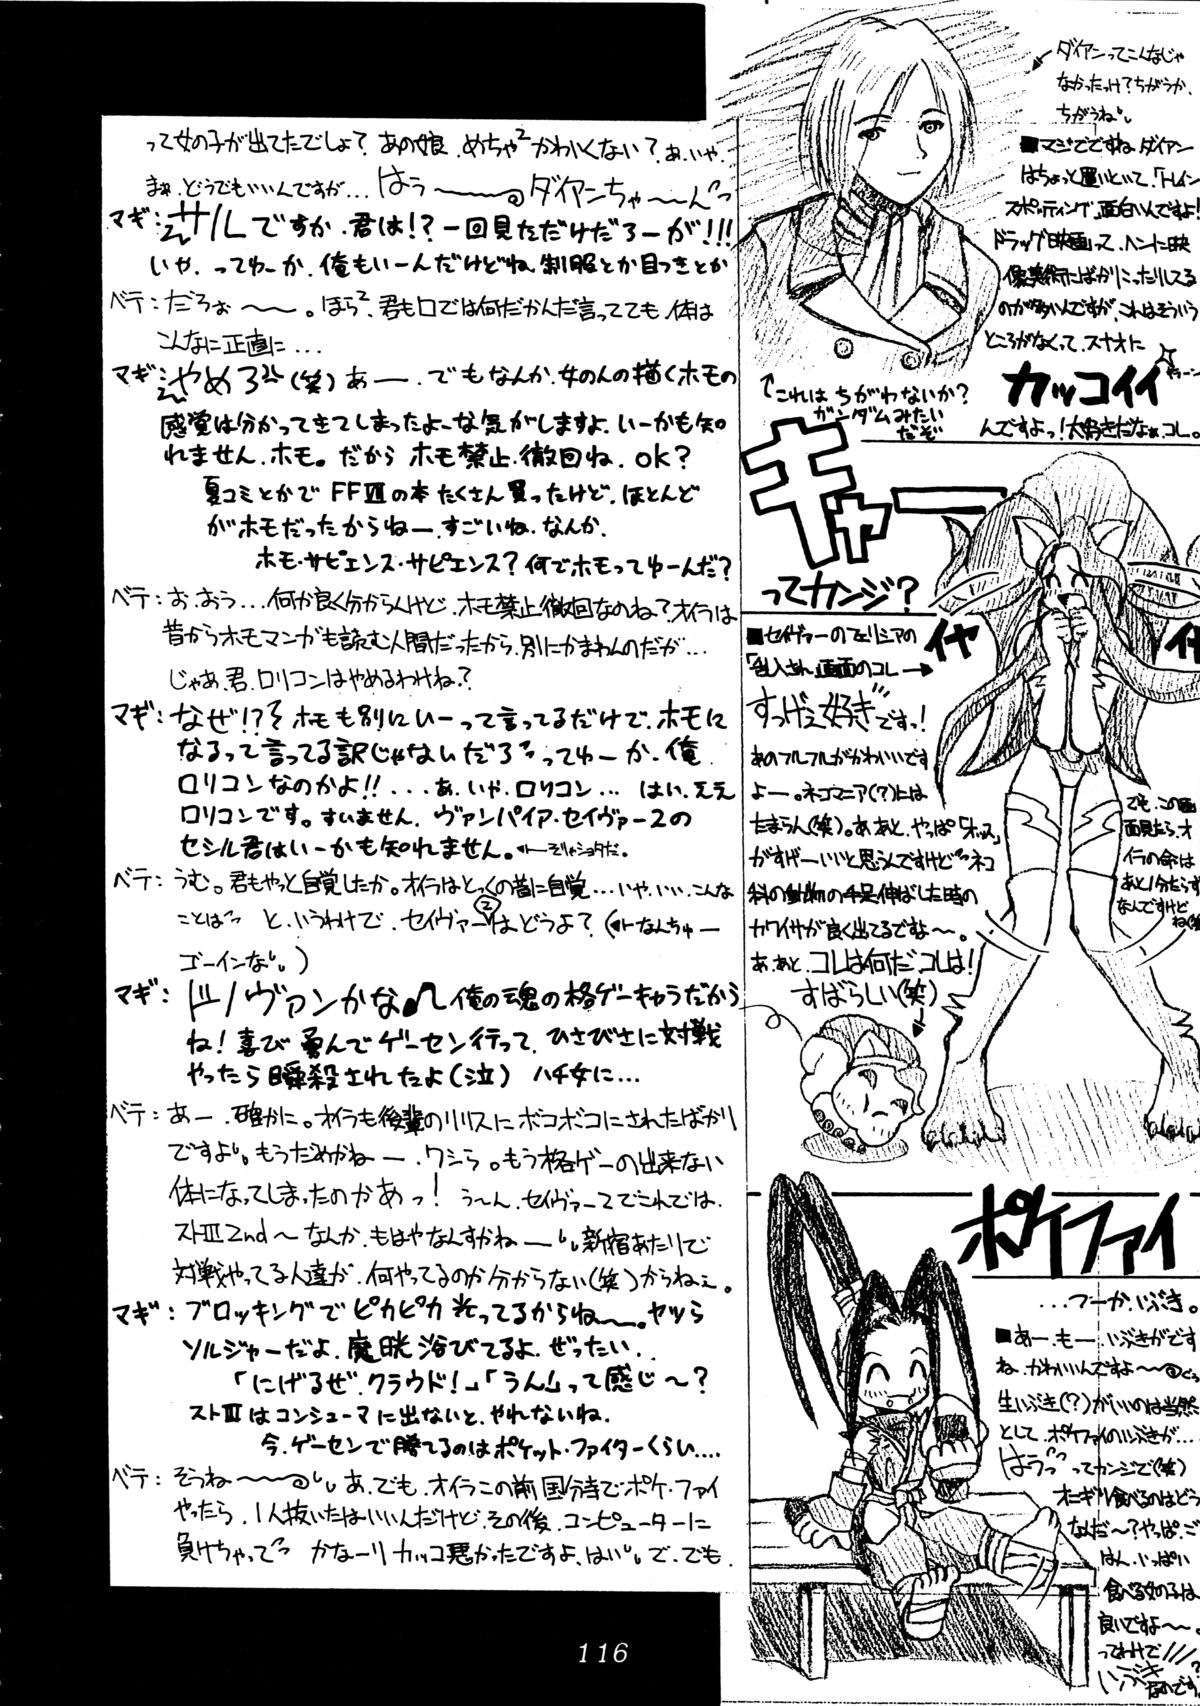 って女の子が出てたでしょ？あの娘、めちゃ²かわいくない？あ、いや、
まぁ、どうでもいいんですが…はぅ～～～@ダイアンちゃ～～ん
マギ：サルですか、君は!?一回見ただけだろーが!!!
いや、ってゆーか、俺もいーんだけどね、制服とか目つきとか
ベテ：だろぉ～～。ほら²、君も口では何だかんだ言ってても、体は
こんなに正直に…
マギ：やめろ(笑)あー、でもなんか、女のんの描くホモの
感覚は分かってきてしまったよーな気がしますよ、いーかも知
れません、ホモ。だから ホモ禁止、徹回ね、OK？
夏コミとかで FFⅦの本たくさん買ったけど、ほとんど
がホモだったからねー、すごいね、なんか、
ホモ・サピエンス・サピエンス？何でホモってゆーんだ？
ベテ：お、おう…何か良く分からんけど、ホモ禁止徹回なのね？オイラは
昔からホモマンガも読む人間だったから、別にかまわんのだが…
じゃあ、君、ロリコンはやめるわけね？
マギ：なぜ!?ホモも別にいーって言ってるだけで、ホモに
なるって言ってる訳じゃないだろってゆーか、俺
ロリコンなのかよ!!…あ、いや、ロリコン…はい、ええ
ロリコンです。すいません、ヴァンパイア・セイヴァー2の
セシル君はいーかも知れません。←そりゃショタだ。
ベテ：うむ。君もやっと自覚したか。オイラはとっくの昔に自覚…いや、いい、こんな
ことは と、いうわけで、セイヴァー②はどうよ？(←なんちゅー
ゴーインな)
マギ：ドノヴァンかな♪俺の魂の格ゲーキャラだから
ね！喜び勇んでゲーセン行って、ひさびさに対戦
やったら瞬殺されたよ(泣) ハチ女に…
ベテ：あー、確かに。オイラも後輩のリリスにボコボコにされたばかり
ですよ。もうだめかねー、ワシら。もう格ゲーの出来ない
体になってしまったのかあっ！ う～ん、セイヴァー2でこれでは、
ストⅢ2nd～なんか、もはやなんすかねー新宿あたりで
対戦やってる人達が、何やってるのか分からない(笑)からねぇ。
マギ：ブロッキングでピカピカ光ってるからね～。ヤツら
ソルジャーだよ、魔晄浴びてるよ、ぜったい、
「にげるぜ、クラウド！」「うん」って感じ～？
ストⅢはコンシューマに出ないと、やれないね、
今、ゲーセンで勝てるのはポケット・ファイターくらい…
ベテ：そうね～～@あ、でも、オイラこの前国分寺でポケ・ファイ
やったら、1人抜いたはいいんだけど、その後、コンピューターに
負けちゃって かなーりカッコ悪かったですよ、はい で、でも、
ダイアンってこんなじゃ
なかったっけ？ちがうか、
ちがうね
■マジでですね、ダイアン
はちょっと置いといて、「トレイン
スポッティング」、面白いんですよ！
ドラッグ映画って、ヘンに映
像美術にばかりこったりしてる
のが多いんですが、これはそういう
ところがなくって、スナオに
カッコイイ
んですよっ！大好きだなぁ、コレ。
↑これは ちがわないか？
ガンダムみたい
だぞ
キャー
ってカンジ？
■セイヴァーのフェリシアの
「乱入され」画面のコレ→
イヤ
イヤ
すっげえ好きですっ！
あのフルフルがかわいいです
よー。ネコマニア(?)には
たまらん(笑)。あ、あと、やっぱ「ホッス」
がすげーいいと思うんですけど ネコ
科の動物の手足伸ばした時の
カワイサが良く出てるですよ～。
あ、あと、コレは何だ、コレは！
すばらしい(笑)
でも、この画
面見たら、オ
イラの命は
あと1分たらず
なんですけど
ね(笑)
ポケファイ
…フーか、いぶき。
■あー、もー、いぶきがです
ね、かわいいんですよ～～@
生いぶき(?)がいいのは当然
として、ポケファイのいぶきが…
はうっってカンジで(笑)
オニギリ食べるのはどう
なんだ～？やっぱ、ご
はん、いっぱい
食べる女の子は
良いですよ～。
ってわけで
いぶき
116